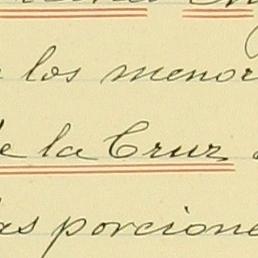 los menor
de la Cruz
las porcione